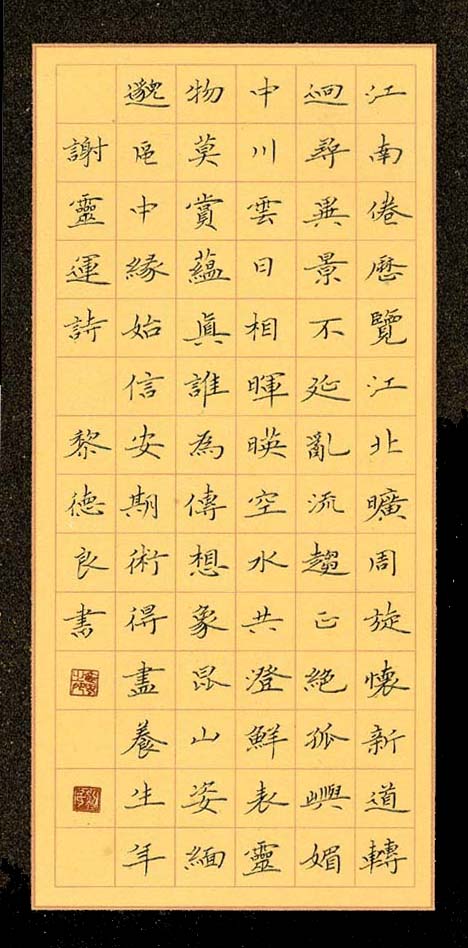 江南倦歷覽江北曠周旋懷新道轉
迥尋異景不延亂流趨正絕孤嶼媚
中川雲日相暉暎空水共澄鮮表靈
物莫賞蘊眞誰為傳想象昆山姿緬
邈區中緣始信安期術得盡養生年
謝靈運詩 黎德良書